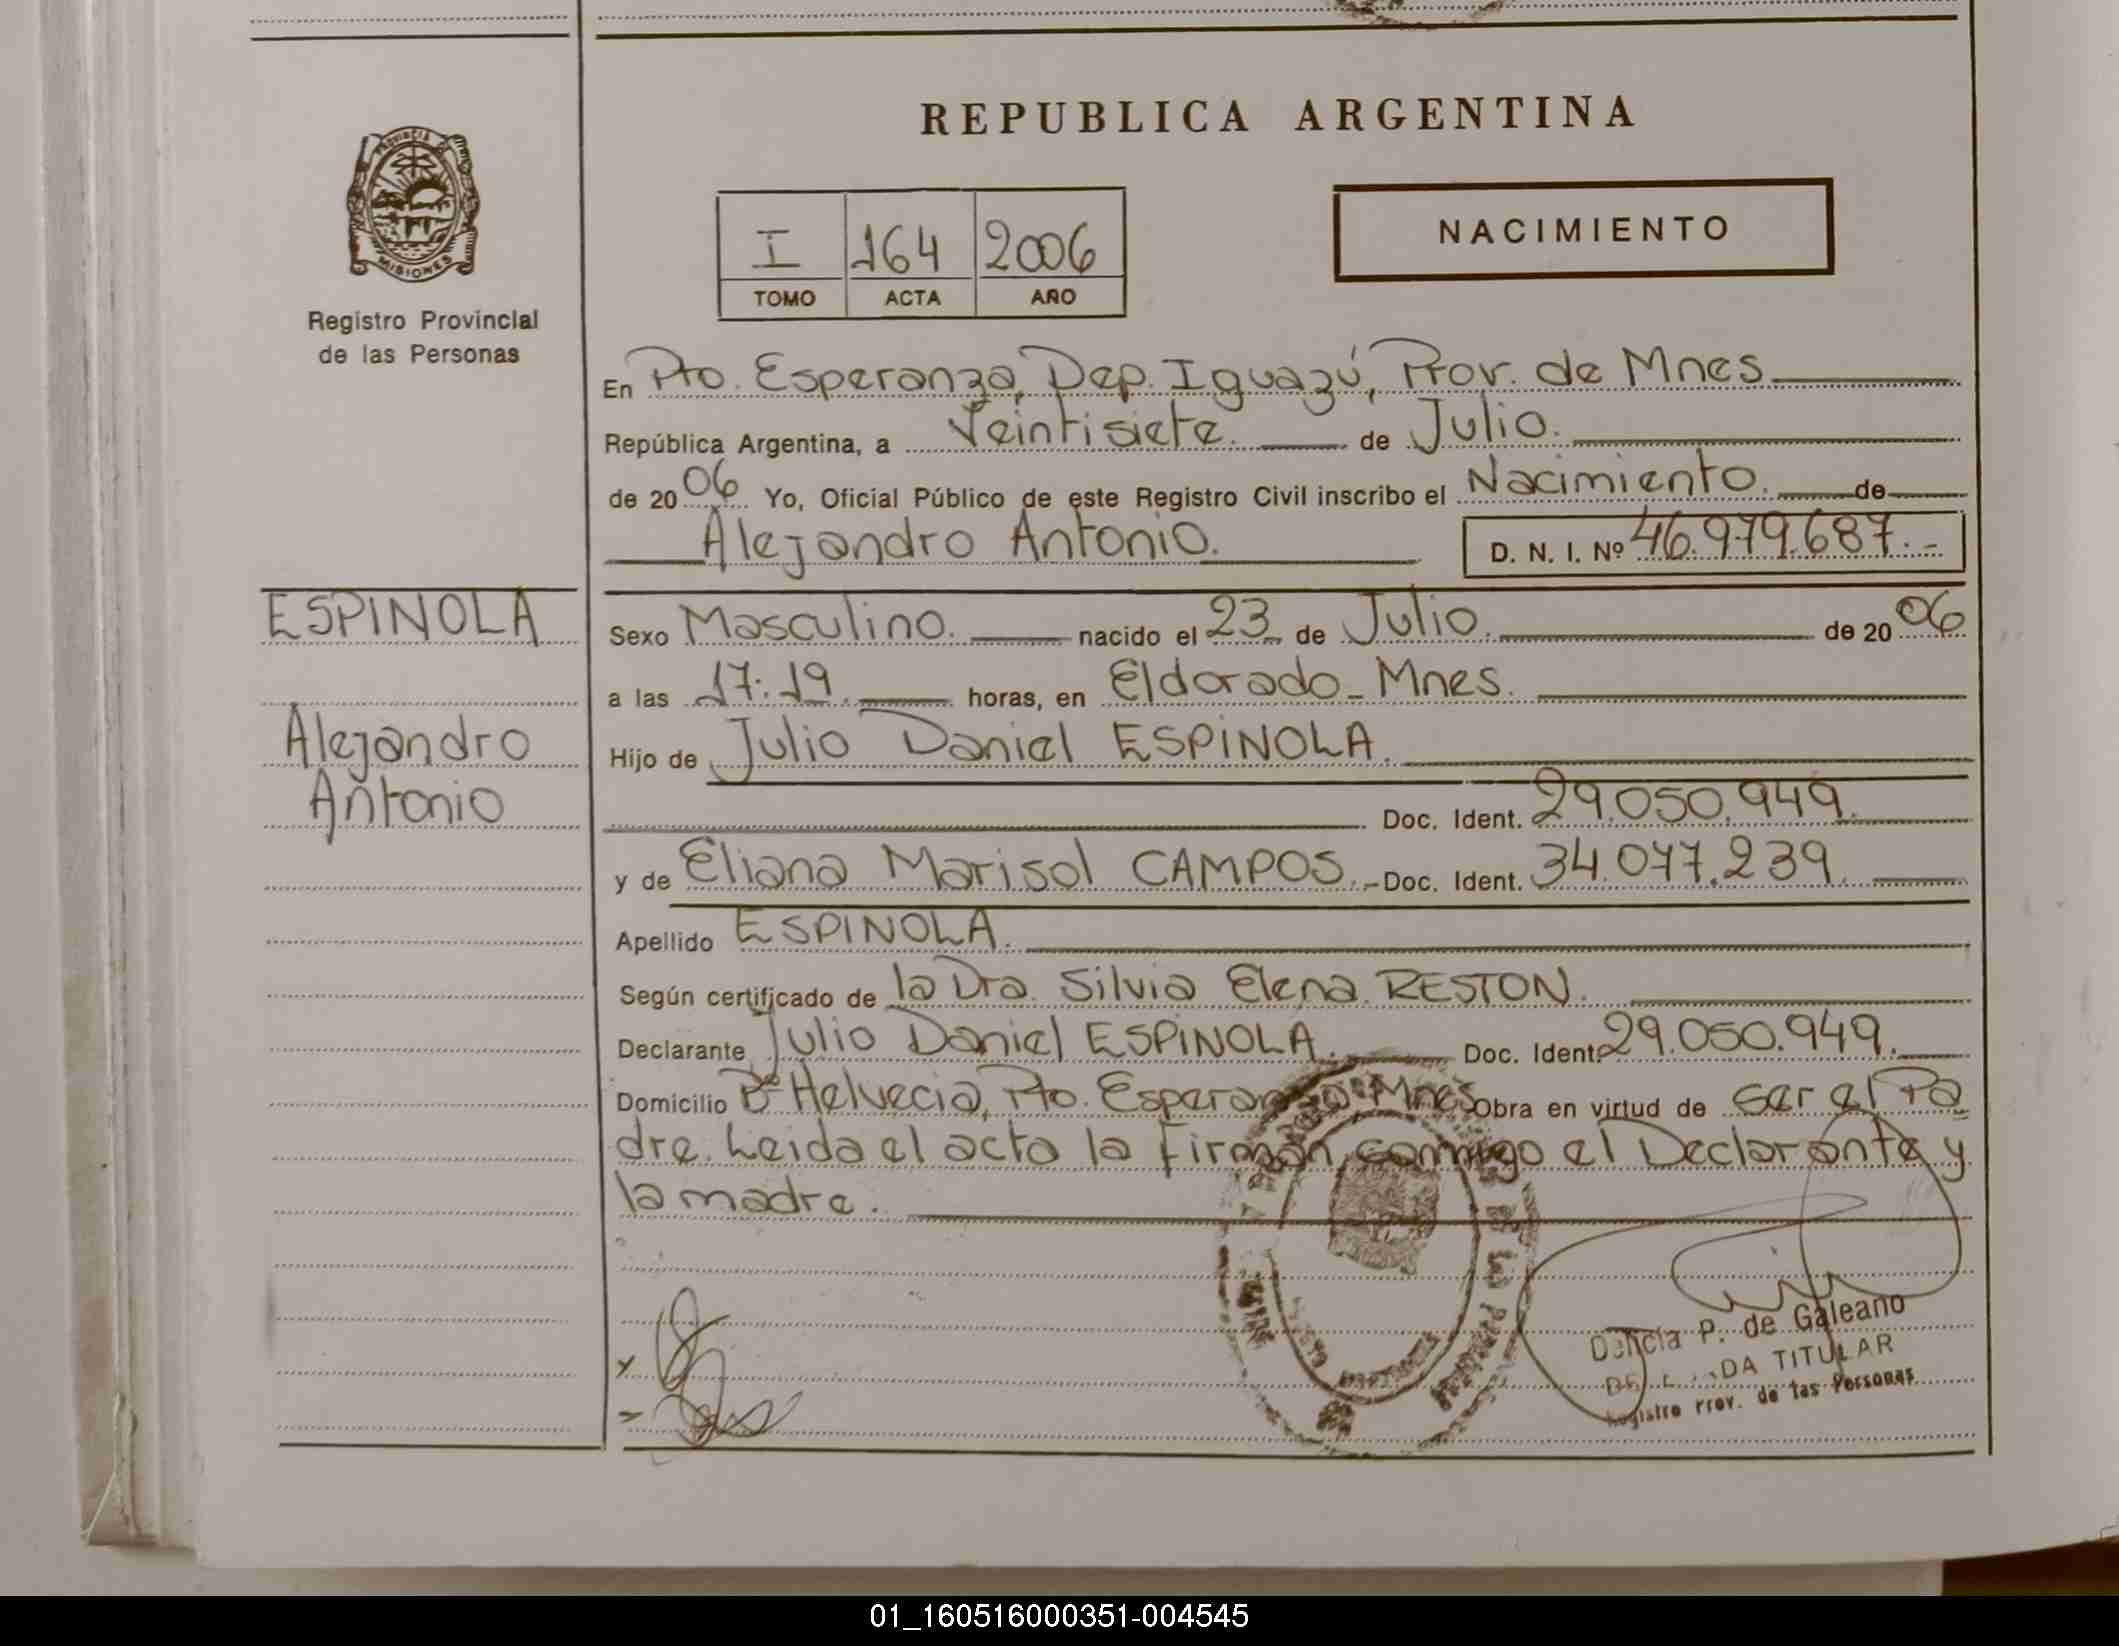 PROVINCIA DE
MISIONES
Registro Provincial
de las Personas
ESPINOLA
Alejandro
Antonio
REPUBLICA ARGENTINA
I 164 2006
TOMO ACTA AÑO
NACIMIENTO
En Pto. Esperanza, Dep. Iguazú, Prov. de Mnes
República Argentina, a Veintisiete. de Julio.
de 2006 Yo, Oficial Público de este Registro Civil inscribo el Nacimiento. de
Alejandro Antonio. D. N. I. Nº 46.979.687.-
Sexo Masculino. nacido el 23 de Julio. de 2006
a las 17:19. horas, en Eldorado_Mnes.
Hijo de Julio Daniel ESPINOLA.
Doc. Ident. 29.050.949.
y de Eliana Marisol CAMPOS.- Doc. Ident. 34.077.239.
Apellido ESPINOLA.
Según certificado de la Dra. Silvia Elena RESTON.
Declarante Julio Daniel ESPINOLA. Doc. Ident. 29.050.949.
Domicilio Bº Helvecia, Pto. Esperanza Mnes Obra en virtud de ser el Pa
dre. Leida el acta la Firman conmigo el Declarante y
la madre.
Delicia P. de Galeano
DA TITULAR
Registro Prov. de las Personas
01_160516000351-004545